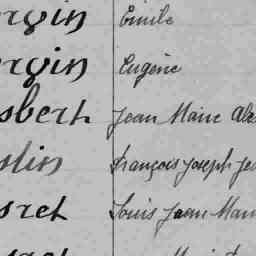 rgin Émile
rgin Eugène
sbert Jean Marie Ale
slin François Joseph Je
sret Louis Jean Mari